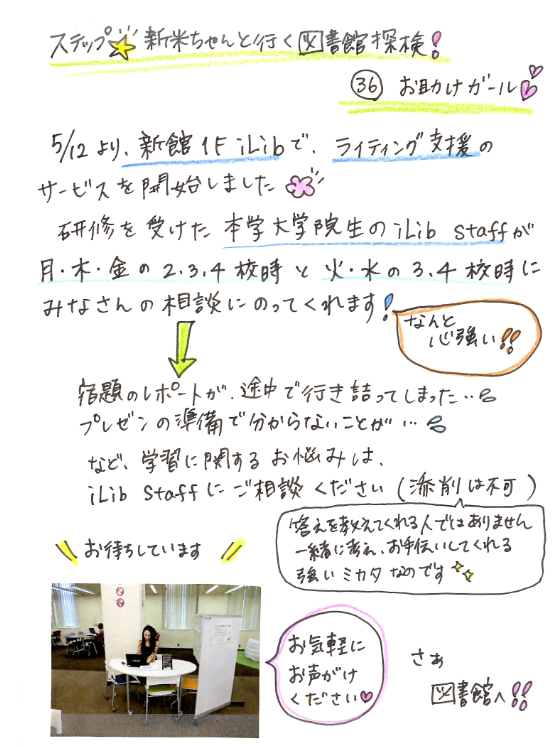 ステップ☆新米ちゃんと行く図書館探検!
㊱ お助けガール
5/12より、新館1F iLibで、ライティング支援の
サービスを開始しました
研修を受けた本学大学院生のiLib staffが
月・木・金の2.3.4校時と火・水の3.4校時に
みなさんの相談にのってくれます!
なんと
心強い!!
宿題のレポートが、途中で行き詰ってしまった…
プレゼンの準備で分からないことが…
など、学習に関するお悩みは、
iLib staffにご相談ください(添削は不可)
答えを教えてくれる人ではありません
一緒に考え、お手伝いしてくれる
強いミカタなのです
お待ちしています
お気軽に
お声がけ
ください♡
さぁ
図書館へ!!